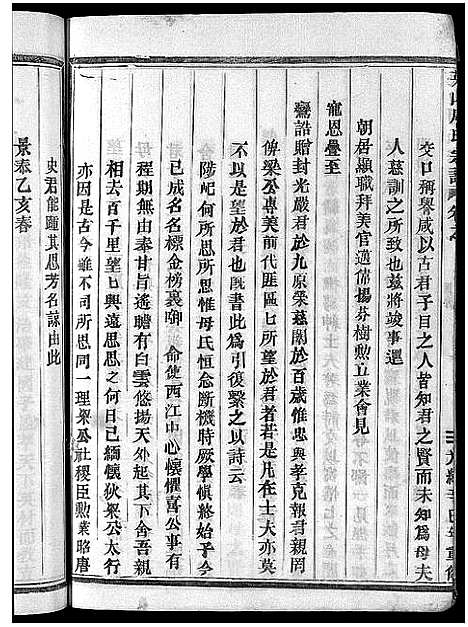 交口稱譽咸以古君子目之人皆知君之賢而未知爲母夫
人慈訓之所致也茲將竣事還
朝居顯職拜美官遇偉揚芬樹勲立業會見
寵恩疊至
鸞誥贈封光嚴君於九原榮慈闈於百歲惟忠與孝克報君親罔
俾梁公專美前代匪區匕所望於君者若是凡在士大亦莫
不以是望於君也旣書此為引復繫之以詩云
陟屺何所思所思惟母氏恒念斷機時厥學愼終始子今
已成名名標金榜裏啣命使西江中心懷懼喜公事有
程期無由奉甘旨遙瞻有白雲悠揚天外起其下舍吾親
相去百千里望匕興遠思思之何日已緬懷狄梁公太行
亦因是古今雖不同所思同一理梁公社稷臣勲業昭唐
史君能踵其思芳名諒由此
景泰乙亥春